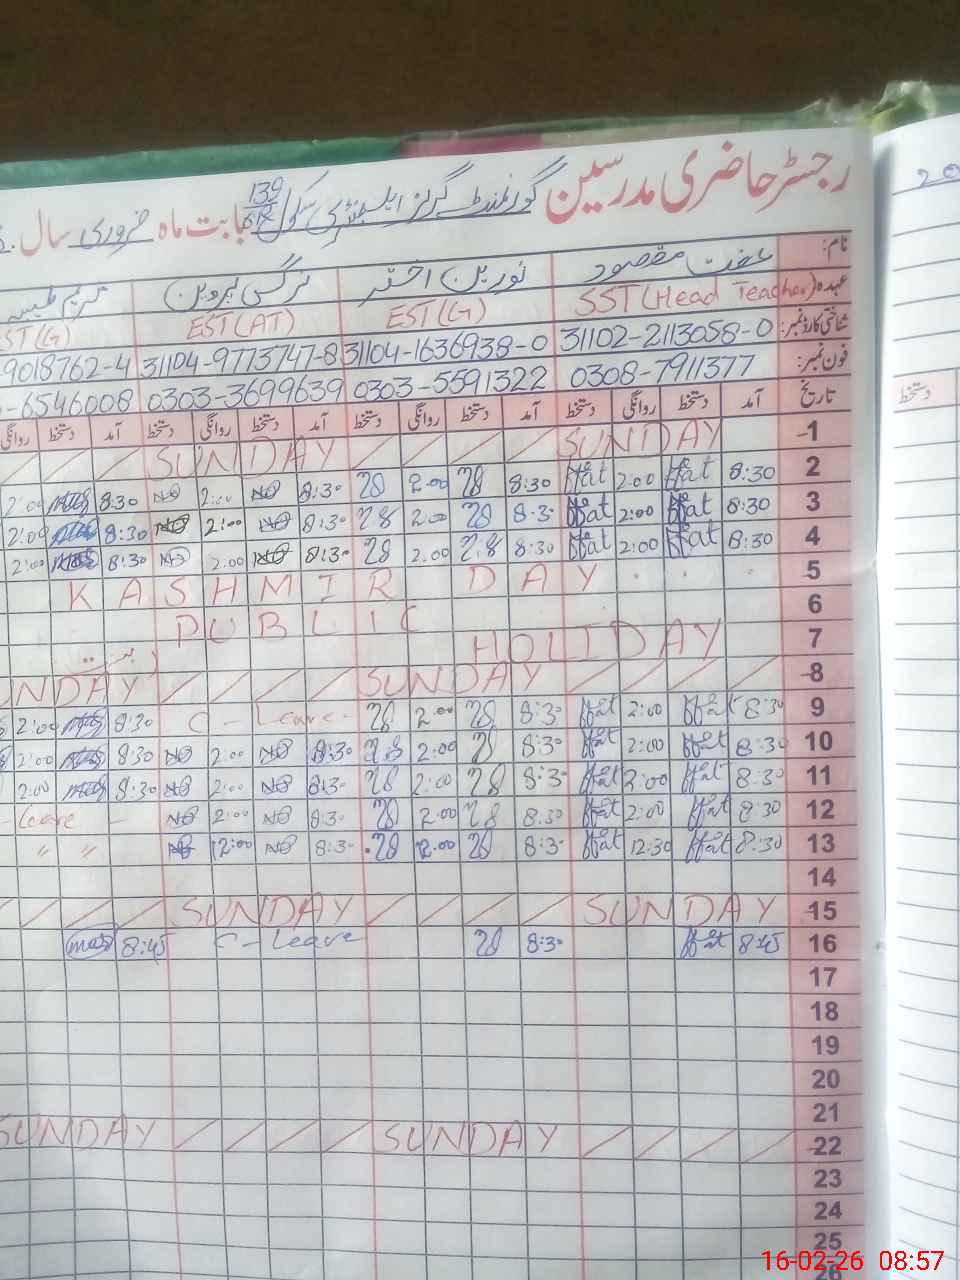 رجسٹر حاضری مدرسین گورنمنٹ گرلز ایلیمنٹری سکول 139/6R بابت ماہ فروری سال
نام: عفت مقصود نورین اختر نرگس پروین مریم طیبہ
عہدہ: SST (Head Teacher) EST (G) EST (AT) EST (G)
شناختی کارڈ نمبر: 31102-2113058-0 31104-1636938-0 31104-9773747-8 9018762-4
فون نمبر: 0308-7911377 0303-5591322 0303-3699639 -6546008
تاریخ آمد دستخط روانگی دستخط آمد دستخط روانگی دستخط آمد دستخط روانگی دستخط آمد دستخط روانگی دستخط
1 SUNDAY SUNDAY
2 8:30 ffat 2:00 ffat 8:30 28 2:00 28 8:30 NP 2:00 NP 8:30 2:00
3 8:30 ffat 2:00 ffat 8:30 28 2:00 28 8:30 NP 2:00 NP 8:30 2:00
4 8:30 ffat 2:00 ffat 8:30 28 2:00 28 8:30 NP 2:00 NP 8:30 2:00
5 KASHMIR DAY
6 PUBLIC
7 HOLIDAY بسنت
8 SUNDAY NDAY
9 8:30 ffat 2:00 ffat 8:30 28 2:00 28 C-Leave 8:30 2:00
10 8:30 ffat 2:00 ffat 8:30 28 2:00 28 8:30 NP 2:00 NP 8:30 2:00
11 8:30 ffat 2:00 ffat 8:30 28 2:00 28 8:30 NP 2:00 NP 8:30 2:00
12 8:30 ffat 2:00 ffat 8:30 28 2:00 28 8:30 NP 2:00 NP - Leave -
13 8:30 ffat 12:30 ffat 8:30 28 12:00 28 8:30 NP 12:00 NP " "
14
15 SUNDAY SUNDAY
16 8:45 ffat 8:30 28 C-Leave 8:45
17
18
19
20
21
22 SUNDAY SUNDAY
23
24
25
26
دستخط
16-02-26 08:57